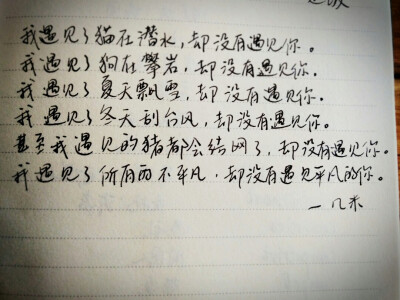 我遇见了猫在潜水，却没有遇见你。
我遇见了狗在攀岩，却没有遇见你。
我遇见了夏天飘雪，却没有遇见你。
我遇见了冬天刮台风，却没有遇见你。
甚至我遇见的猪都会结网了，却没有遇见你。
我遇见了所有而不平凡，却没有遇见平凡的你。
—几米